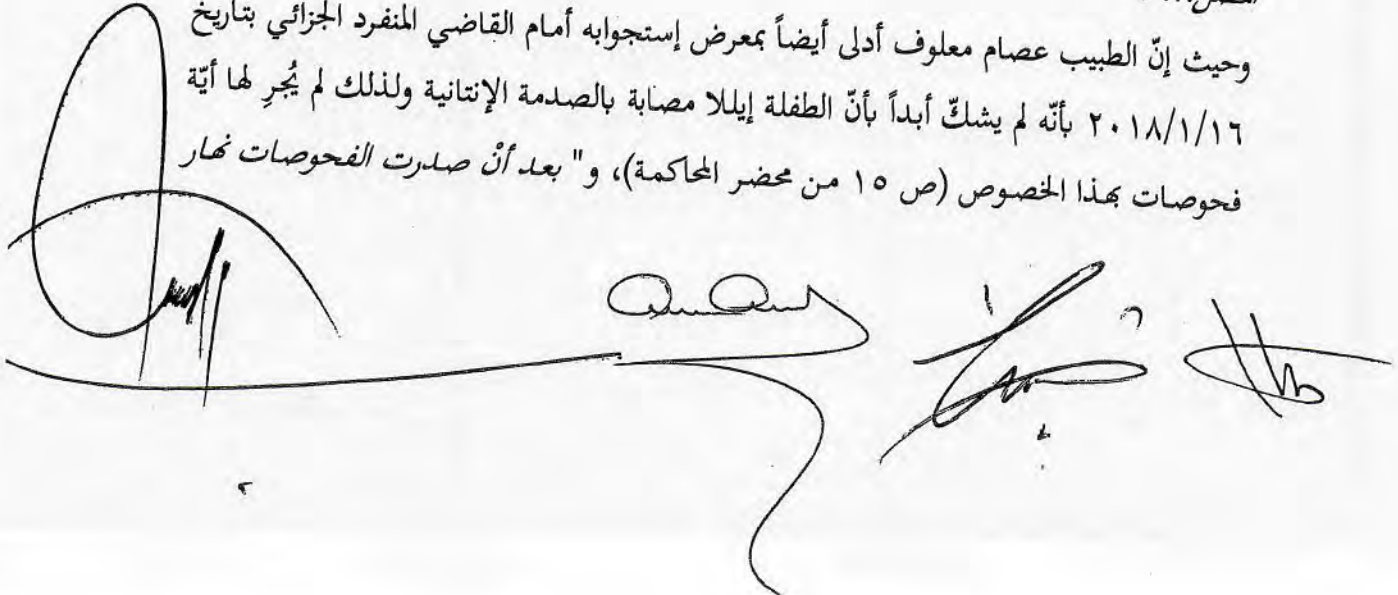 وحيث إنّ الطبيب عصام معلوف أدلى أيضاً بمعرض إستجوابه أمام القاضي المنفرد الجزائي بتاريخ
٢٠١٨/١/١٦ بأنّه لم يشكّ أبداً بأنّ الطفلة إيللا مصابة بالصدمة الإنتانية ولذلك لم يُجرِ لها أيّة
فحوصات بهذا الخصوص (ص ١٥ من محضر المحاكمة)، و" بعد أنْ صدرت الفحوصات نهار
٢